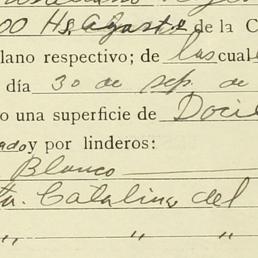 00 Hs. Agosto de la C
lano respectivo; de las cual
día 30 de sep. de
o una superficie de Docie
ado y por linderos:
Blanco
ta. Catalina del
" " "